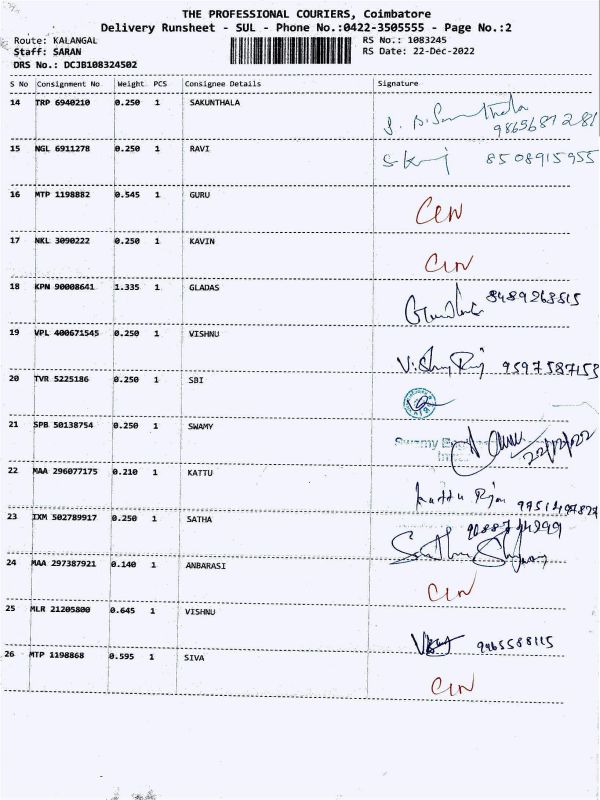 THE PROFESSIONAL COURIERS, Coimbatore
Delivery Runsheet - SUL - Phone No.:0422-3505555 - Page No.:2
Route: KALANGAL RS No.: 1083245
Staff: SARAN RS Date: 22-Dec-2022
DRS No.: DCJB108324502
S No Consignment No Weight PCS Consignee Details Signature
14 TRP 6940210 0.250 1 SAKUNTHALA
15 NGL 6911278 0.250 1 RAVI 8508915955
16 MTP 1198882 0.545 1 GURU
17 NKL 3090222 0.250 1 KAVIN
18 KPN 90008641 1.335 1 GLADAS 8489263515
19 VPL 400671545 0.250 1 VISHNU 9597587153
20 TVR 5225186 0.250 1 SBI
21 SPB 50138754 0.250 1 SWAMY Swamy 22/12/22
22 MAA 296077175 0.210 1 KATTU
23 IXM 502789917 0.250 1 SATHA
24 MAA 297387921 0.140 1 ANBARASI
25 MLR 21205800 0.645 1 VISHNU 9965588115
26 MTP 1198868 0.595 1 SIVA